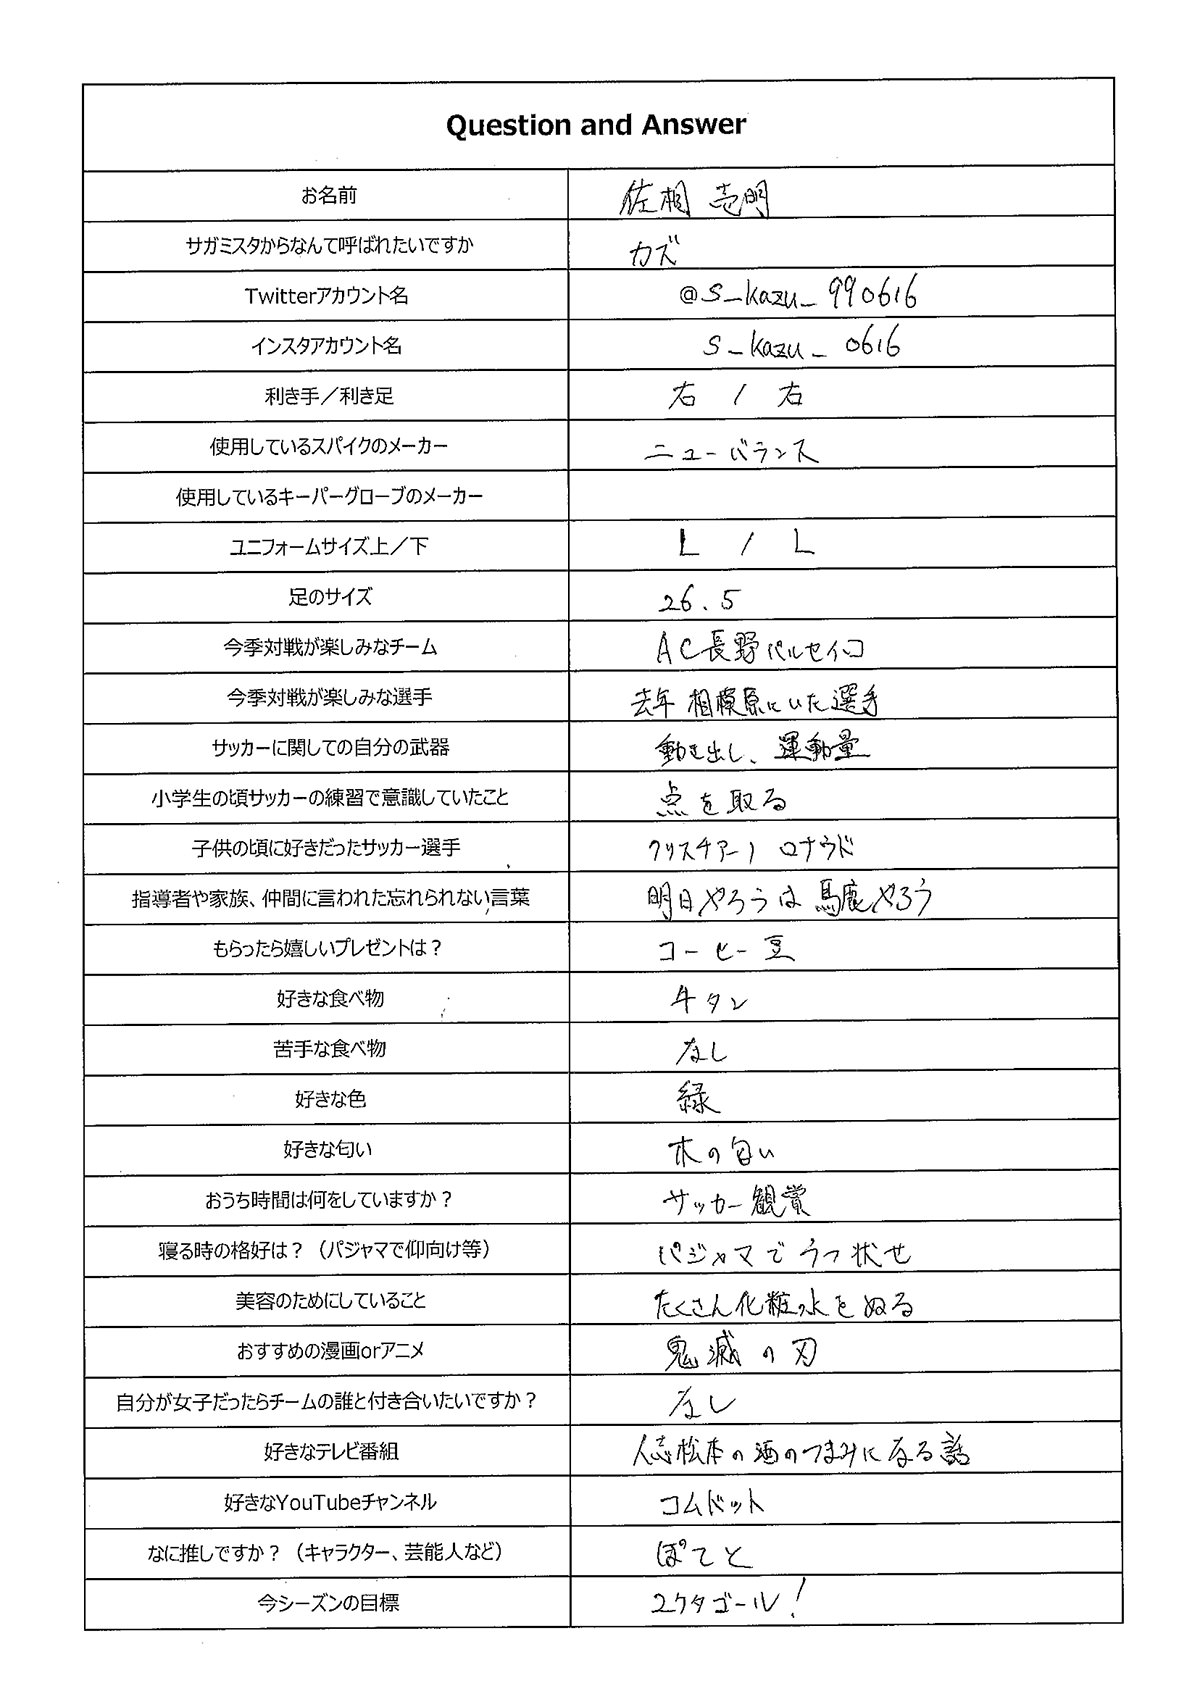 Question and Answer
お名前 佐相 壱明
サガミスタからなんて呼ばれたいですか カズ
Twitterアカウント名 @s_kazu_990616
インスタアカウント名 s_kazu_0616
利き手／利き足 右 / 右
使用しているスパイクのメーカー ニューバランス
使用しているキーパーグローブのメーカー
ユニフォームサイズ上／下 L / L
足のサイズ 26.5
今季対戦が楽しみなチーム AC長野パルセイロ
今季対戦が楽しみな選手 去年 相模原にいた選手
サッカーに関しての自分の武器 動き出し、運動量
小学生の頃サッカーの練習で意識していたこと 点を取る
子供の頃に好きだったサッカー選手 クリスチアーノ ロナウド
指導者や家族、仲間に言われた忘れられない言葉 明日やろうは馬鹿やろう
もらったら嬉しいプレゼントは？ コーヒー豆
好きな食べ物 牛タン
苦手な食べ物 なし
好きな色 緑
好きな匂い 木の匂い
おうち時間は何をしていますか？ サッカー観賞
寝る時の格好は？（パジャマで仰向け等） パジャマでうつ状せ
美容のためにしていること たくさん化粧水をぬる
おすすめの漫画orアニメ 鬼滅の刃
自分が女子だったらチームの誰と付き合いたいですか？ なし
好きなテレビ番組 人志松本の酒のつまみになる話
好きなYouTubeチャンネル コムドット
なに推しですか？（キャラクター、芸能人など） ぽてと
今シーズンの目標 2ケタゴール！